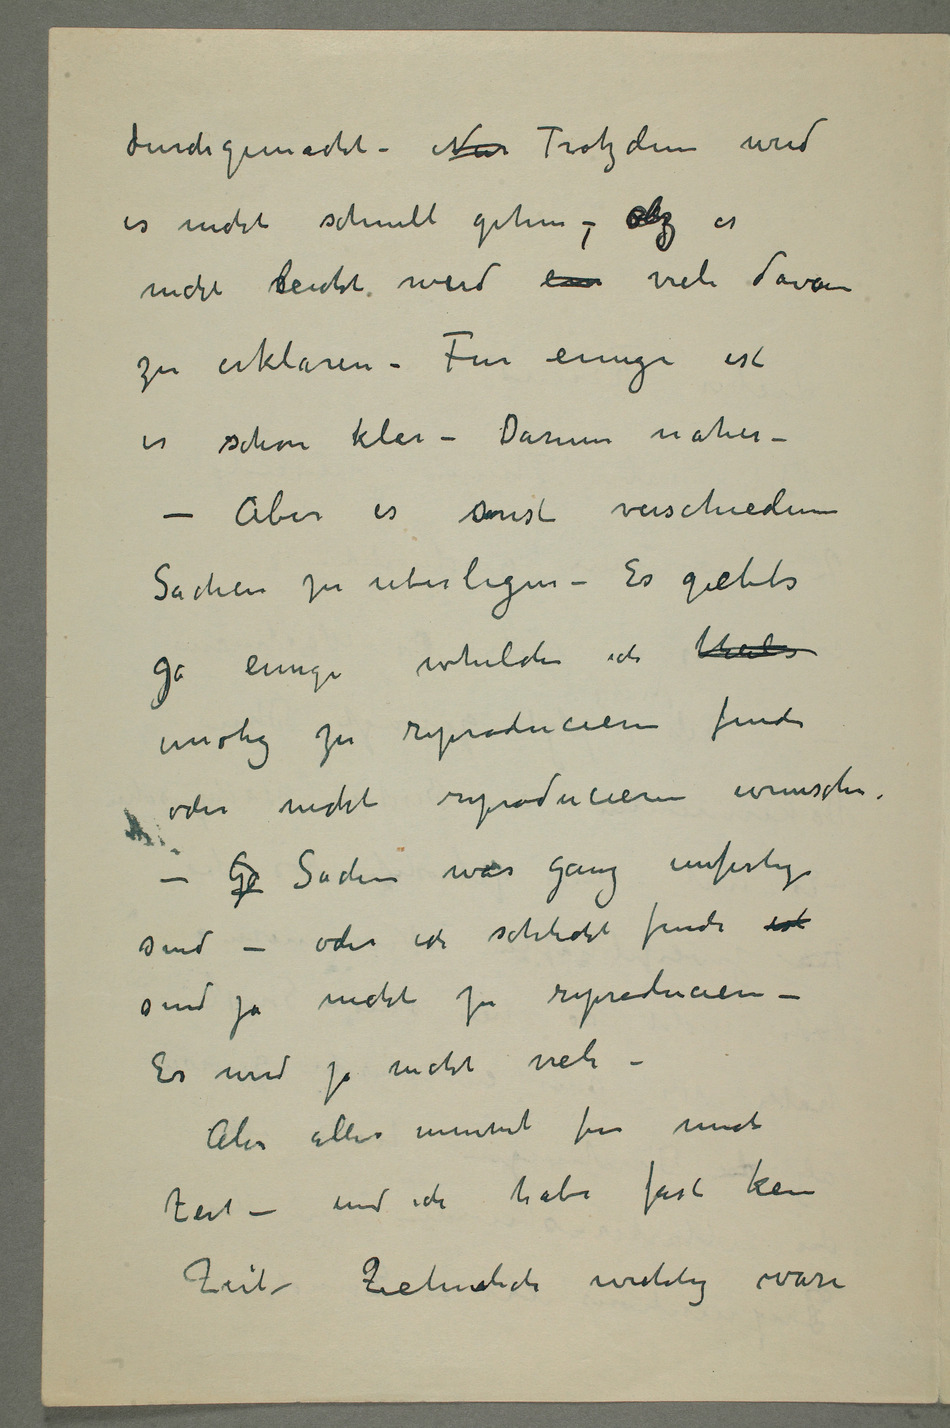 durchgemacht – Nur Trotzdem wird
es nicht schnell gehen –, es
nicht leicht wird ein viele davon
zu erklaren – Fur einige ist
es schon klar – Darum naher –
– Aber es sonst verschiedene
Sachen zu uberlegen – Es giebts
ja einige whelche ich
unotig zu reproducieren finde
oder nicht reproducieren wunsche.
– Ja Sachen was ganz unfertig
sind – oder ich schlecht finde ist
sind ja nicht zu reproducieren –
Es wird ja nicht viele –
Aber alles nimmt fur mich
Zeit – und ich habe fast kein
Zeit – Ziehmlich wichtig ware